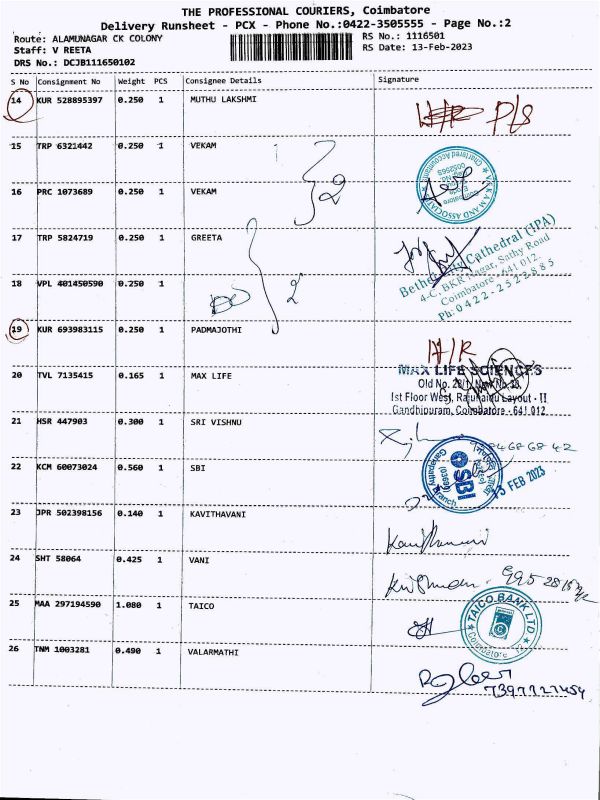 THE PROFESSIONAL COURIERS, Coimbatore
Delivery Runsheet - PCX - Phone No.:0422-3505555 - Page No.:2
Route: ALAMUNAGAR CK COLONY
RS No.: 1116501
Staff: V REETA
RS Date: 13-Feb-2023
DRS No.: DCJB111650102
S No Consignment No Weight PCS Consignee Details Signature
14 KUR 528895397 0.250 1 MUTHU LAKSHMI
P/S
15 TRP 6321442 0.250 1 VEKAM
16 PRC 1073689 0.250 1 VEKAM
2
Chartered Accountants
17 TRP 5824719 0.250 1 GREETA
Bethel City Cathedral (IPA)
4-C, BKR Nagar, Sathy Road
Coimbatore - 641 012.
Ph: 0422-2522885
18 VPL 401450590 0.250 1
2
19 KUR 693983115 0.250 1 PADMAJOTHI
20 TVL 7135415 0.165 1 MAX LIFE
MAX LIFE SCIENCES
Old No. 28/1, New No.38,
1st Floor West, Rajunaidu Layout - II
Gandhipuram, Coimbatore - 641 012
21 HSR 447903 0.300 1 SRI VISHNU
22 KCM 60073024 0.560 1 SBI
SBI
Ganapathy Branch
13 FEB 2023
23 JPR 502398156 0.140 1 KAVITHAVANI
24 SHT 58064 0.425 1 VANI
25 MAA 297194590 1.080 1 TAICO
TAICO BANK LTD
COIMBATORE-12
26 TNM 1003281 0.490 1 VALARMATHI
7397727454